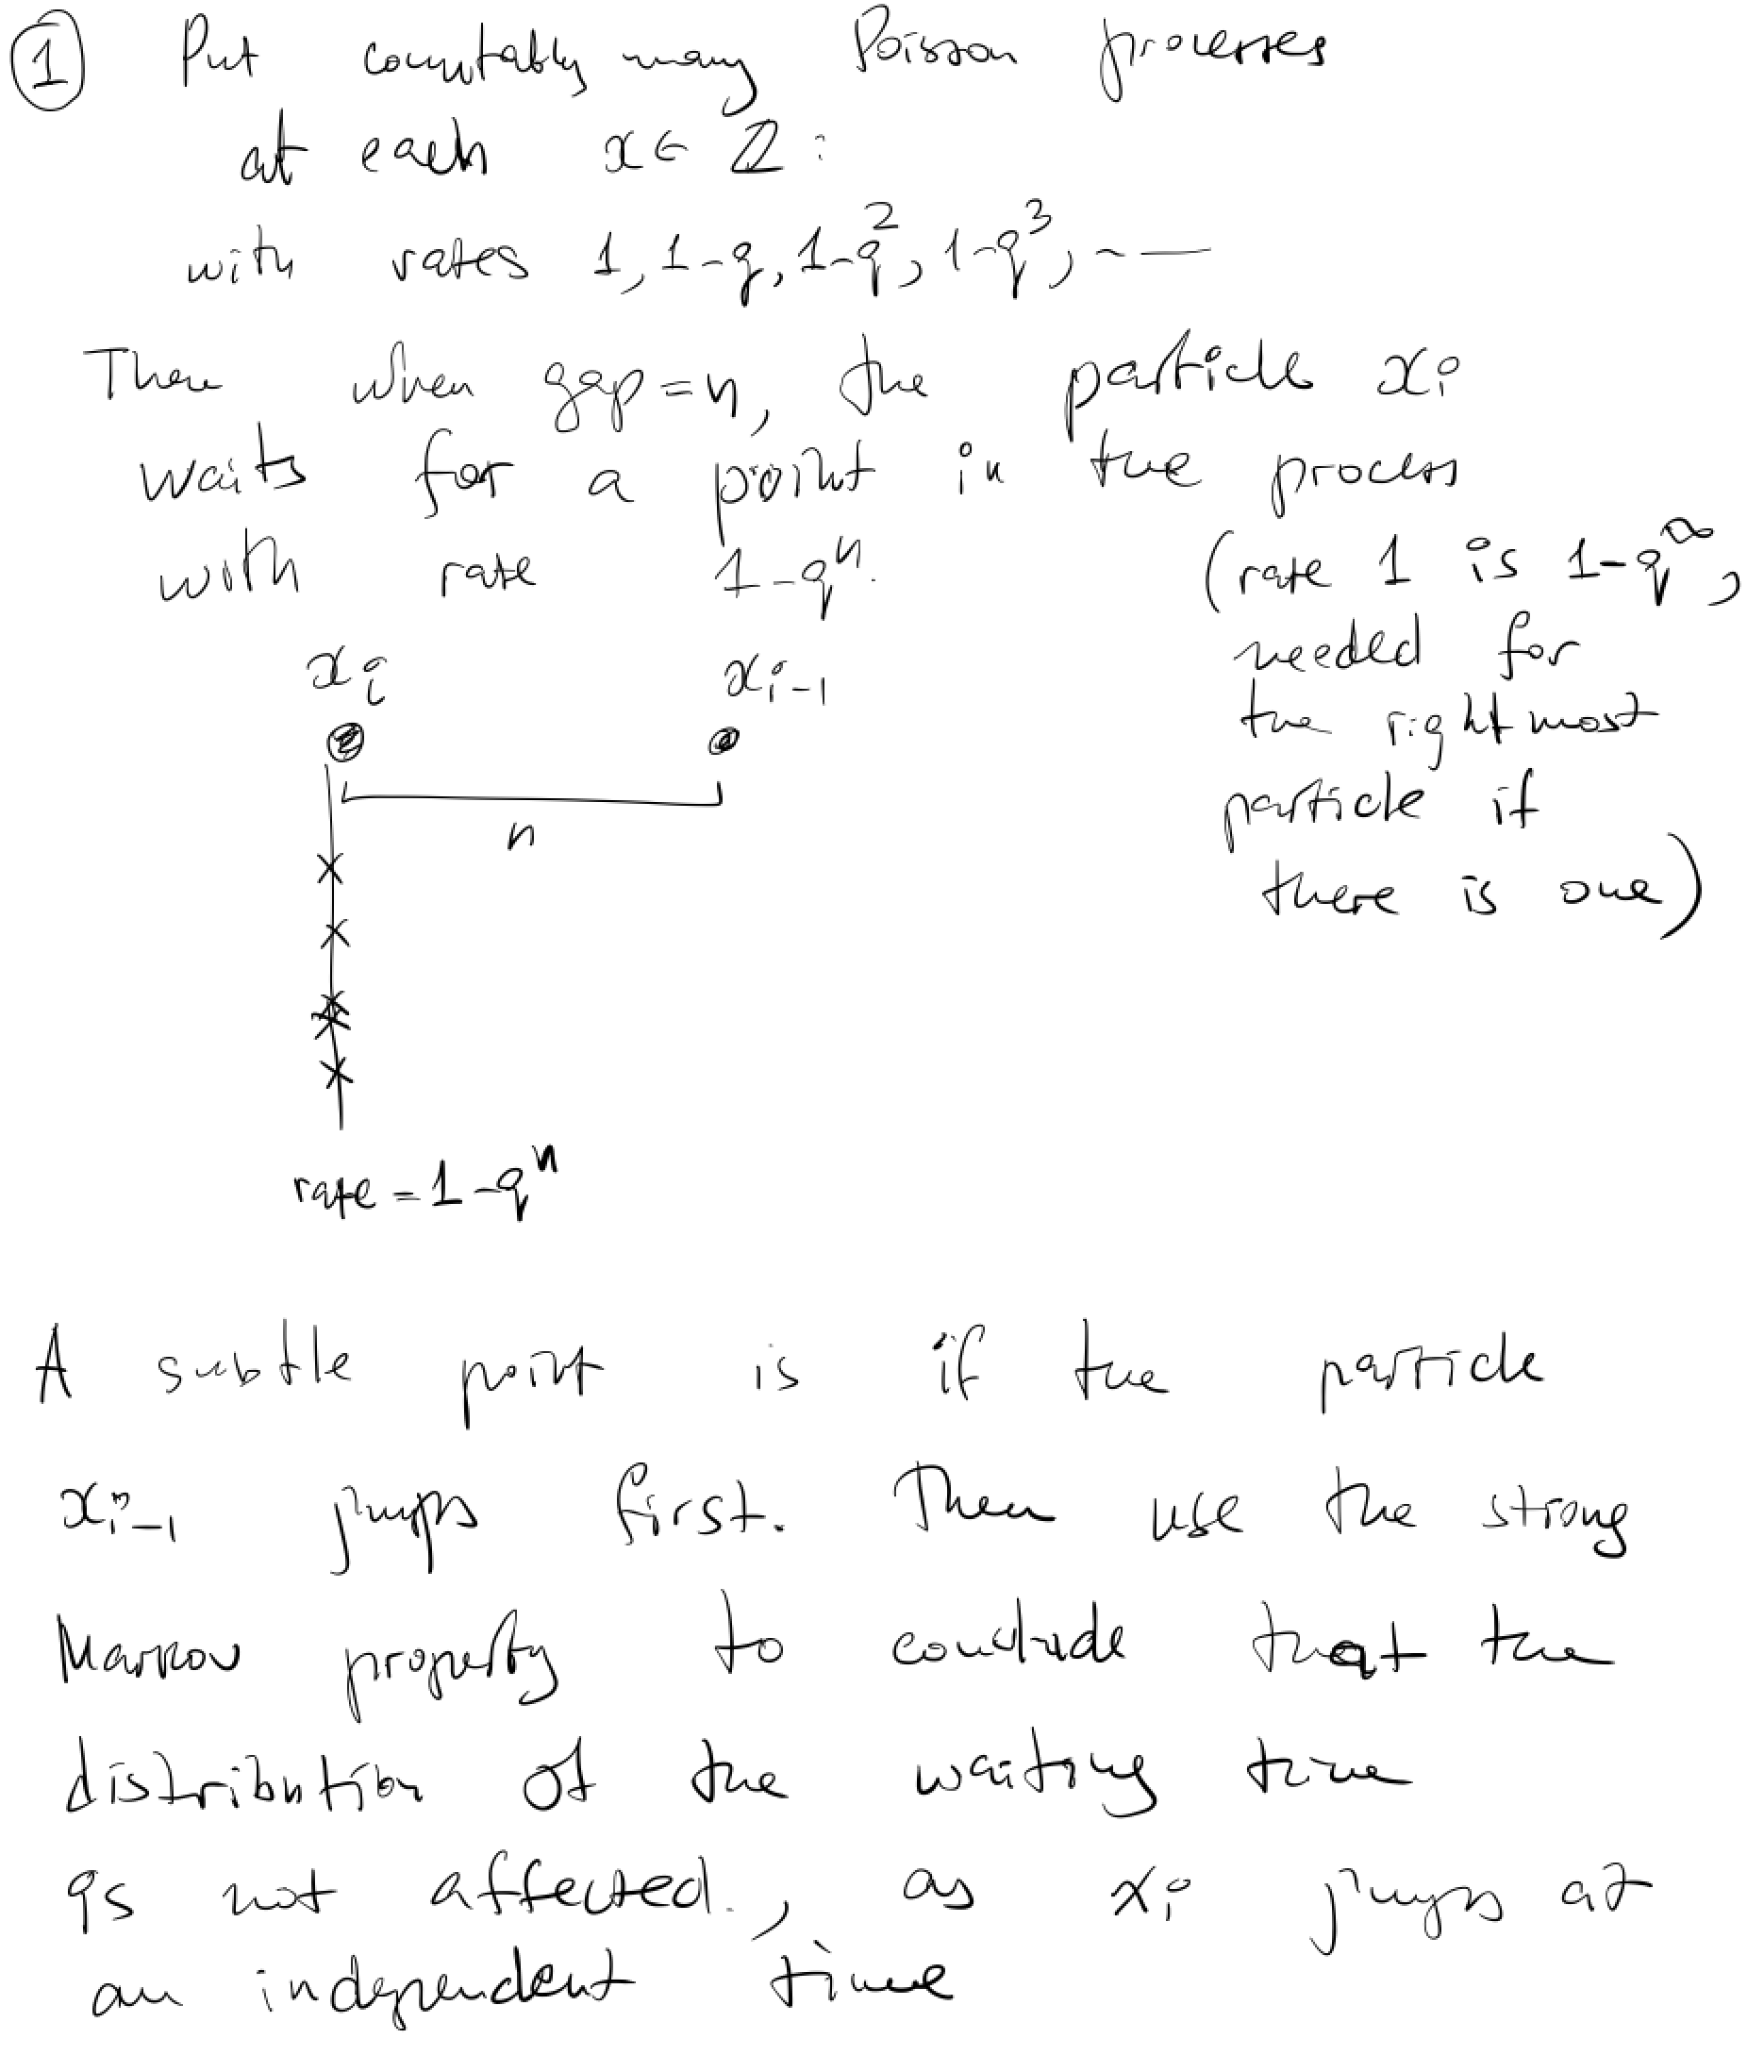 ① Put countably many Poisson processes
at each x ∈ ℤ :
with rates 1, 1-q, 1-q², 1-q³, ---
Then when gap = n, the particle xᵢ
waits for a point in the process
with rate 1-qⁿ.
(rate 1 is 1-q^∞,
needed for
the rightmost
particle if
there is one)
xᵢ xᵢ₋₁
n
rate = 1-qⁿ
A subtle point is if the particle
xᵢ₋₁ jumps first. Then use the strong
Markov property to conclude that the
distribution of the waiting time
is not affected., as xᵢ jumps at
an independent time